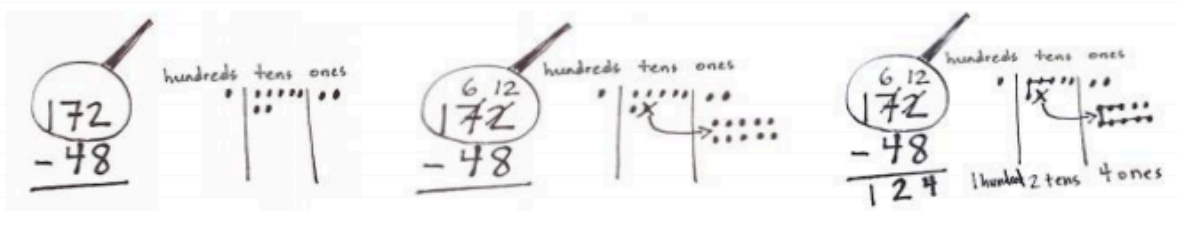 172
- 48
hundreds tens ones
6 12
172
- 48
hundreds tens ones
6 12
172
- 48
124
hundreds tens ones
1 hundred 2 tens 4 ones